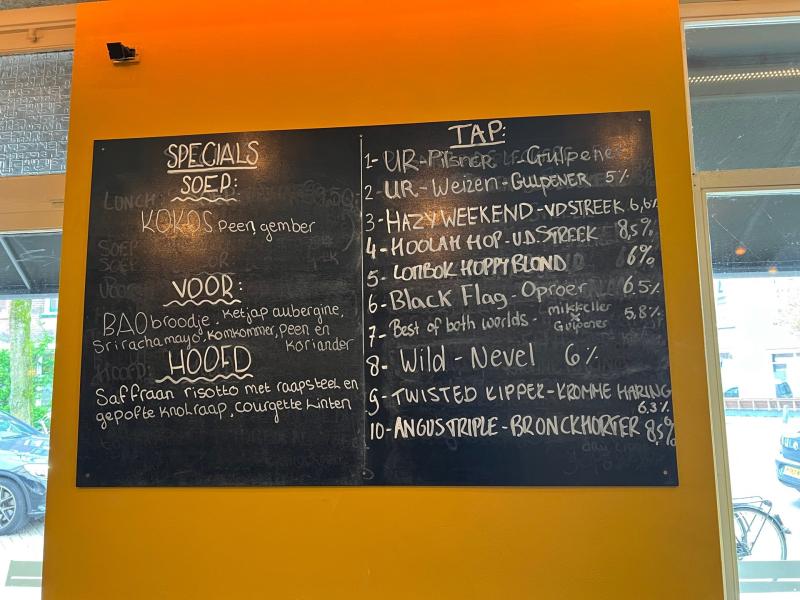 SPECIALS
SOEP:
KOKOS, peen, gember
VOOR:
BAO broodje, ketjap aubergine,
Srirachamayo, komkommer, peen en
koriander
HOOFD
Saffraan risotto met raapsteel en
gepofte knolraap, courgette linten
TAP:
1- UR-Pilsner - Gulpener
2- UR-Weizen-GULPENER 5%
3- HAZY WEEKEND-VDSTREEK 6,6%
4- HOOLAH HOP-V.D. STREEK 8,5%
5- LOMBOK HOPPY BLOND 6%
6- Black Flag - Oproer 6,5%
7- Best of both worlds - mikkeller & Gulpener 5,8%
8- Wild - Nevel 6%
9- TWISTED KIPPER-KROMME HARING
6,3%
10- ANGUS TRIPLE - BRONCKHORTER 8,5%